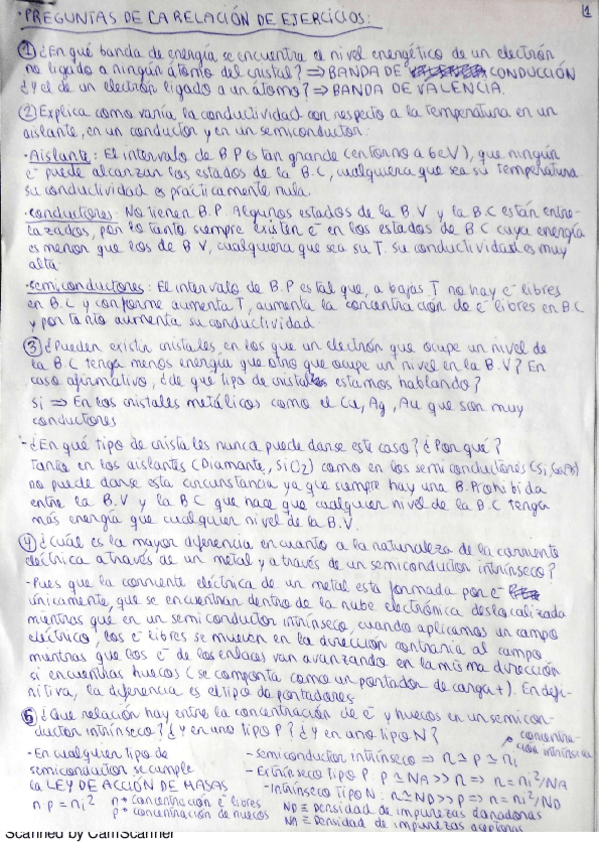 ·PREGUNTAS DE LA RELACIÓN DE EJERCICIOS:
1
① ¿En qué banda de energía se encuentra el nivel energético de un electrón
no ligado a ningún átomo del cristal? ⇒ BANDA DE CONDUCCIÓN
¿Y el de un electrón ligado a un átomo? ⇒ BANDA DE VALENCIA.
② Explica como varía la conductividad con respecto a la temperatura en un
aislante, en un conductor y en un semiconductor.
·Aislante: El intervalo de B P es tan grande (en torno a 6eV), que ningún
e⁻ puede alcanzar los estados de la B.C, cualquiera que sea su temperatura
su conductividad es prácticamente nula.
·Conductores: No tienen B.P. Algunos estados de la B.V y la B.C están entre-
lazados, por lo tanto siempre existen e⁻ en los estados de BC cuya energía
es menor que los de B V, cualquiera que sea su T. su conductividad es muy
alta
·Semiconductores: El intervalo de B.P es tal que, a bajas T no hay e⁻ libres
en B.C y conforme aumenta T, aumenta la concentración de e⁻ libres en B.C
y por tanto aumenta su conductividad
③ ¿Pueden existir cristales en los que un electrón que ocupe un nivel de
la B.C tenga menos energía que otro que ocupe un nivel en la B.V? En
caso afirmativo, ¿de que tipo de cristales estamos hablando?
Si ⇒ En los cristales metálicos como el Cu, Ag, Au que son muy
conductores
- ¿En qué tipo de cristales nunca puede darse este caso? ¿Por qué?
Tanto en los aislantes (Diamante, SiO2) como en los semiconductores (Si, GaAs)
no puede darse esta circunstancia ya que siempre hay una B.Prohibida
entre la B.V y la BC que hace que cualquier nivel de la B.C tenga
más energía que cualquier nivel de la B.V.
④ ¿Cuál es la mayor diferencia en cuanto a la naturaleza de la corriente
eléctrica a través de un metal y a través de un semiconductor intrínseco?
- Pues que la corriente eléctrica de un metal esta formada por e⁻
únicamente, que se encuentran dentro de la nube electrónica deslocalizada
mientras que en un semiconductor intrínseco, cuando aplicamos un campo
eléctrico, los e⁻ libres se mueven en la dirección contraria al campo
mientras que los e⁻ de los enlaces van avanzando en la misma dirección
si encuentran huecos (se comporta como un portador de carga +). En defi-
nitiva, la diferencia es el tipo de portadores
⑤ ¿Que relación hay entre la concentración de e⁻ y huecos en un semicon-
ductor intrínseco? ¿Y en uno tipo P? ¿Y en uno tipo N?
concentra-
ción intrínseca
- En cualquier tipo de
semiconductor se cumple
la LEY DE ACCIÓN DE MASAS
n·p = ni²
n = concentración e⁻ libres
p = concentración de huecos
- Semiconductor intrínseco ⇒ n ≃ p ≃ ni
- Extrínseco Tipo P. p ≃ NA >> n ⇒ n = ni²/NA
- Intrínseco Tipo N: n ≃ ND >> p ⇒ n = ni²/ND
ND ≡ Densidad de impurezas donadoras
NA ≡ Densidad de impurezas aceptoras
Scanned by CamScanner